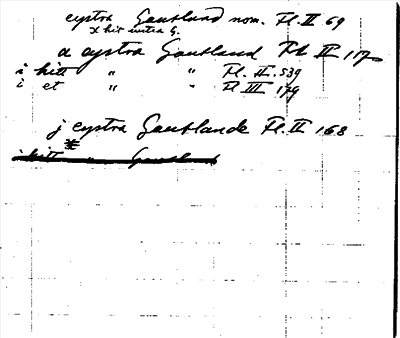 eystra Gautland nom. Fl. II 69
x hit vestra G.
a eystra Gautland Fl. II 117
i hitt " " Fl. II. 539
i et " " Fl III 179
j eystra Gautlande Fl. II 168
*
i hitt " Gautland